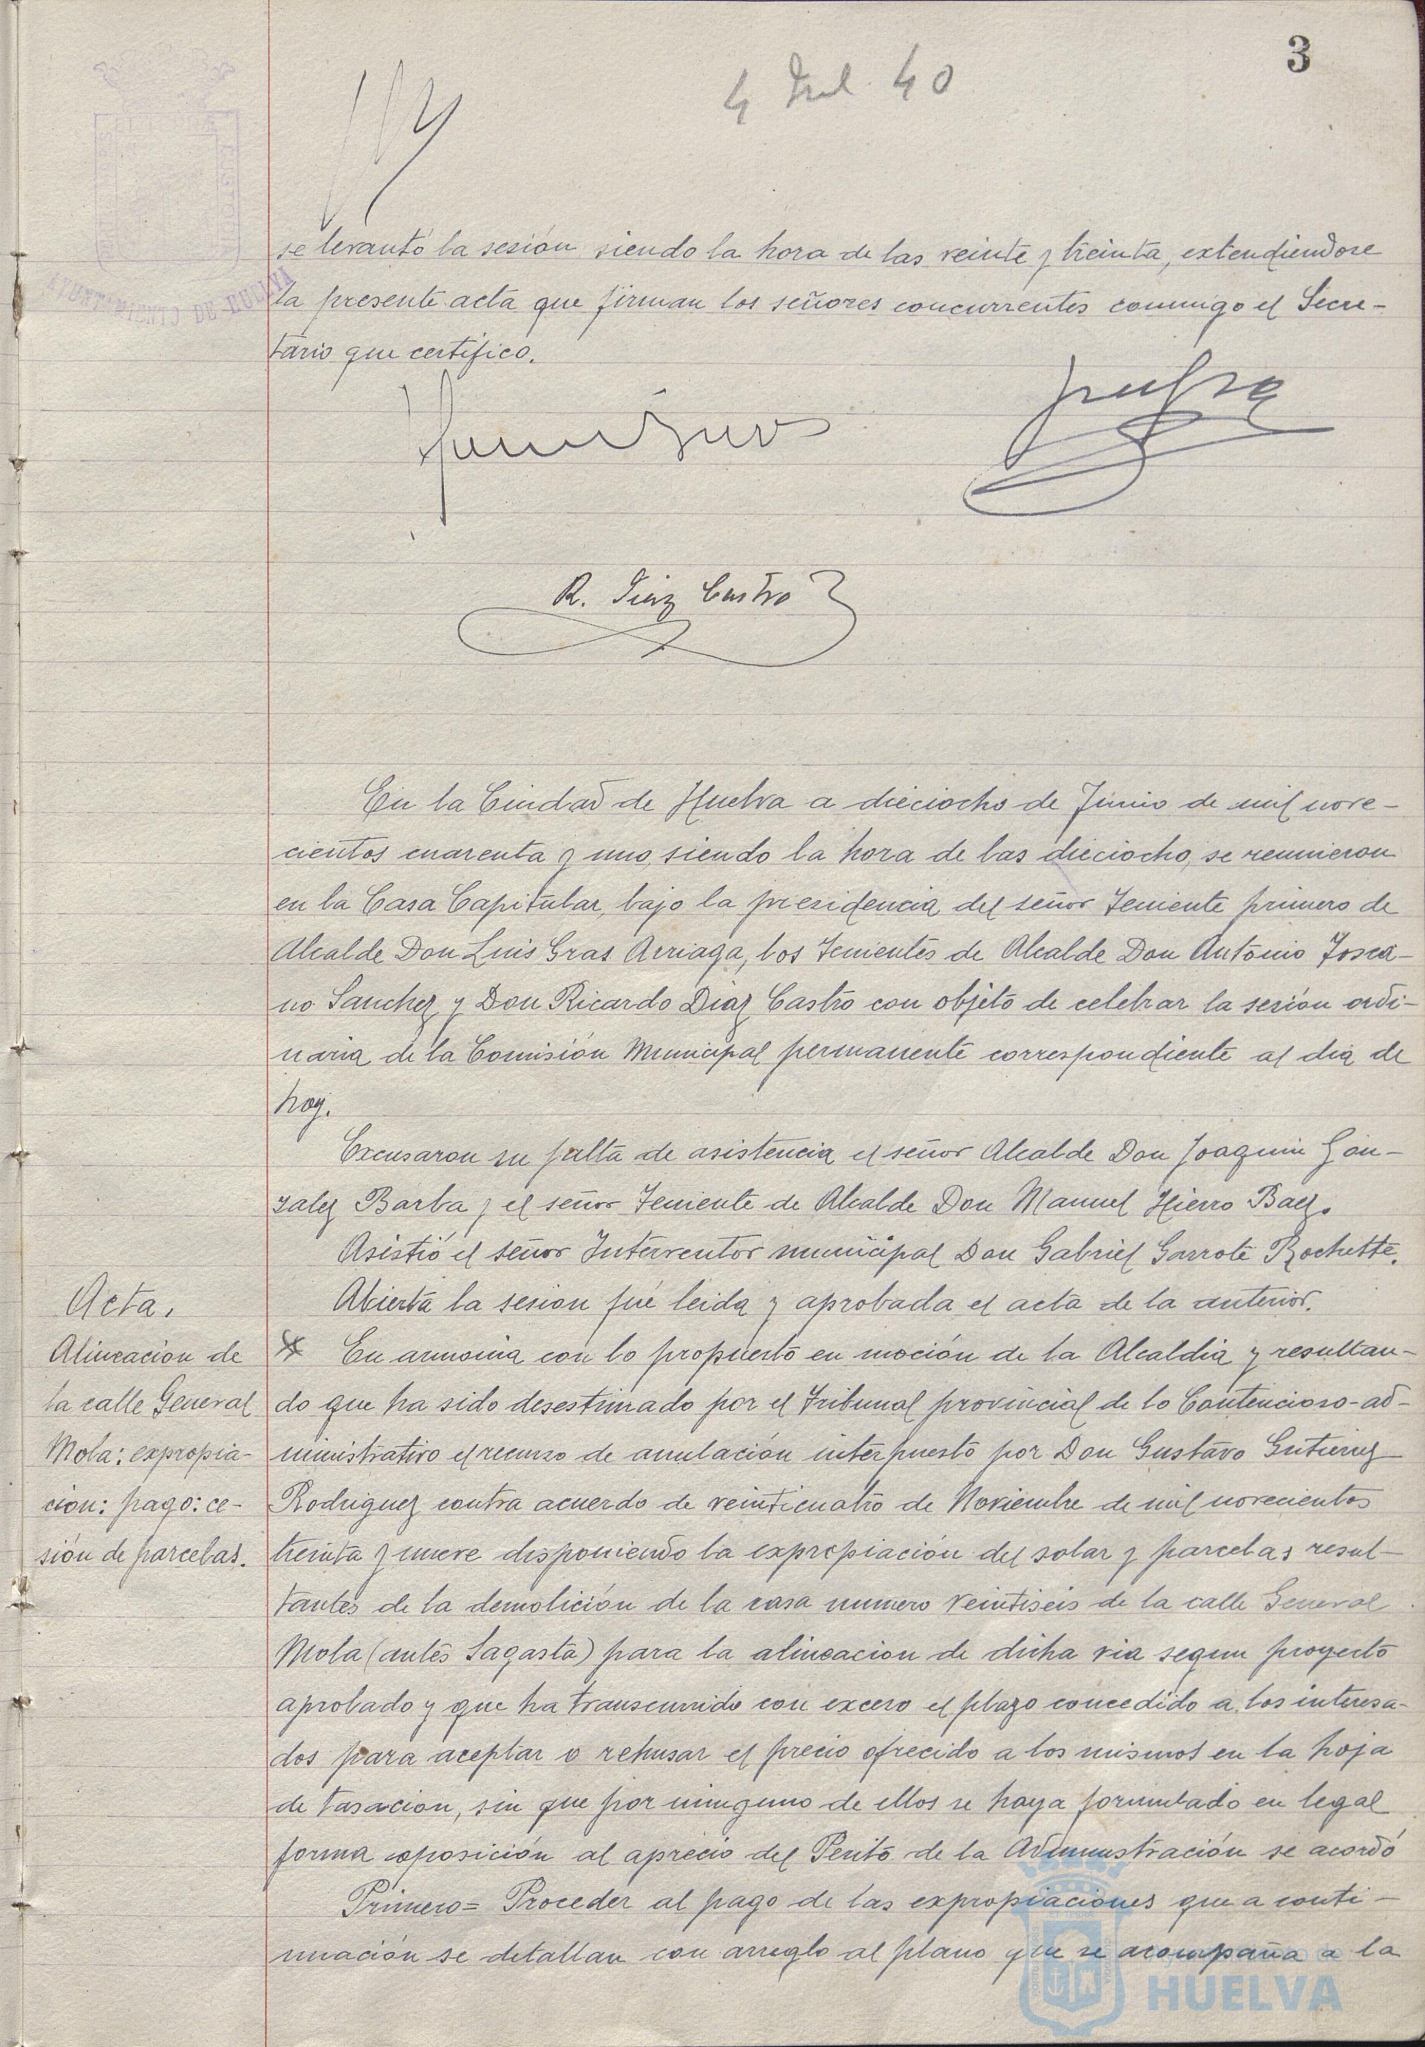 3
4 Jul 40
AYUNTAMIENTO DE HUELVA
se levantó la sesión siendo la hora de las veinte y treinta, extendiendose
la presente acta que firman los señores concurrentes conmigo el Secre-
tario que certifico.
R. Diaz Castro
En la Ciudad de Huelva a dieciocho de Junio de mil nove-
cientos cuarenta y uno, siendo la hora de las dieciocho, se reunieron
en la Casa Capitular, bajo la presidencia del señor Teniente primero de
Alcalde Don Luis Gras Arriaga, los Tenientes de Alcalde Don Antonio Tosca-
no Sanchez y Don Ricardo Diaz Castro con objeto de celebrar la sesión ordi-
naria de la Comisión Municipal permanente correspondiente al dia de
hoy.
Excusaron su falta de asistencia el señor Alcalde Don Joaquin Gon-
zalez Barba y el señor Teniente de Alcalde Don Manuel Hierro Baez.
Asistió el señor Interventor municipal Don Gabriel Garrote Rochette.
Acta.
Abierta la sesion fué leida y aprobada el acta de la anterior.
Alineacion de
la calle General
Mola: expropia-
ción: pago: ce-
sión de parcelas.
En armonia con lo propuesto en moción de la Alcaldia y resultan-
do que ha sido desestimado por el Tribunal provincial de lo Contencioso-ad-
ministrativo el recurso de anulación interpuesto por Don Gustavo Gutierrez
Rodriguez contra acuerdo de veinticuatro de Noviembre de mil novecientos
treinta y nueve disponiendo la expropiación del solar y parcelas resul-
tantes de la demolición de la casa numero veintiseis de la calle General
Mola (antes Sagasta) para la alineacion de dicha via segun proyecto
aprobado y que ha transcurrido con exceso el plazo concedido a los interesa-
dos para aceptar o rehusar el precio ofrecido a los mismos en la hoja
de tasacion, sin que por ninguno de ellos se haya formulado en legal
forma oposición al aprecio del Perito de la Administración se acordó
Primero= Proceder al pago de las expropiaciones que a conti-
nuación se detallan con arreglo al plano que se acompaña a la
HUELVA